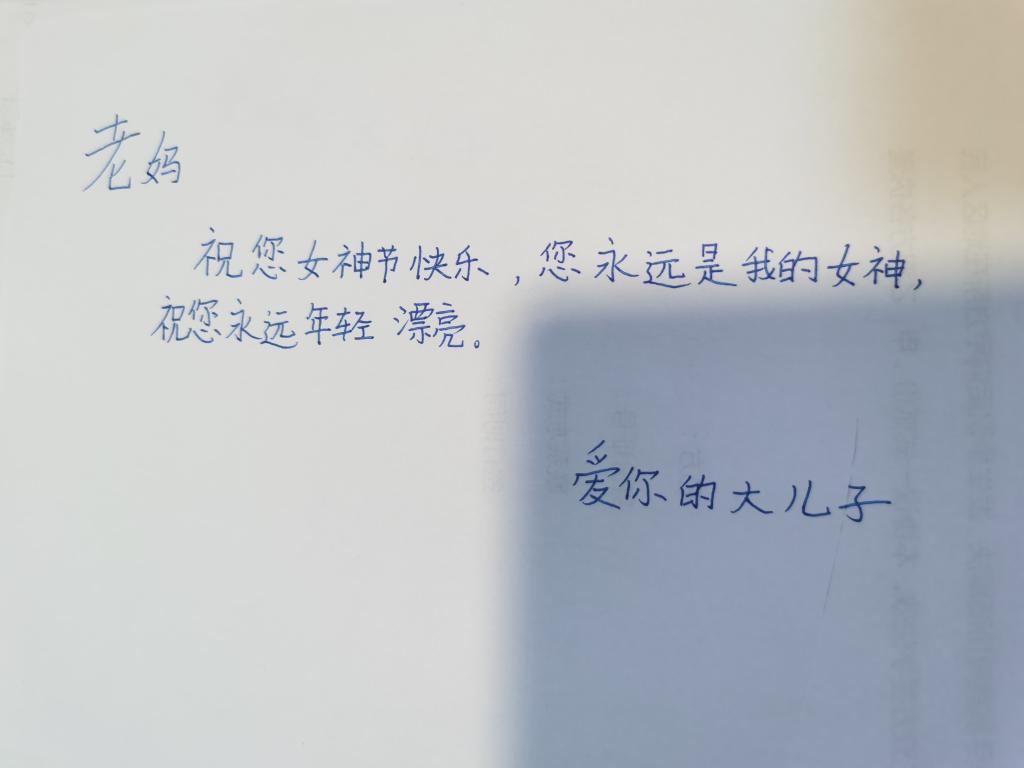 老妈
祝您女神节快乐,您永远是我的女神,
祝您永远年轻 漂亮。
爱你的大儿子